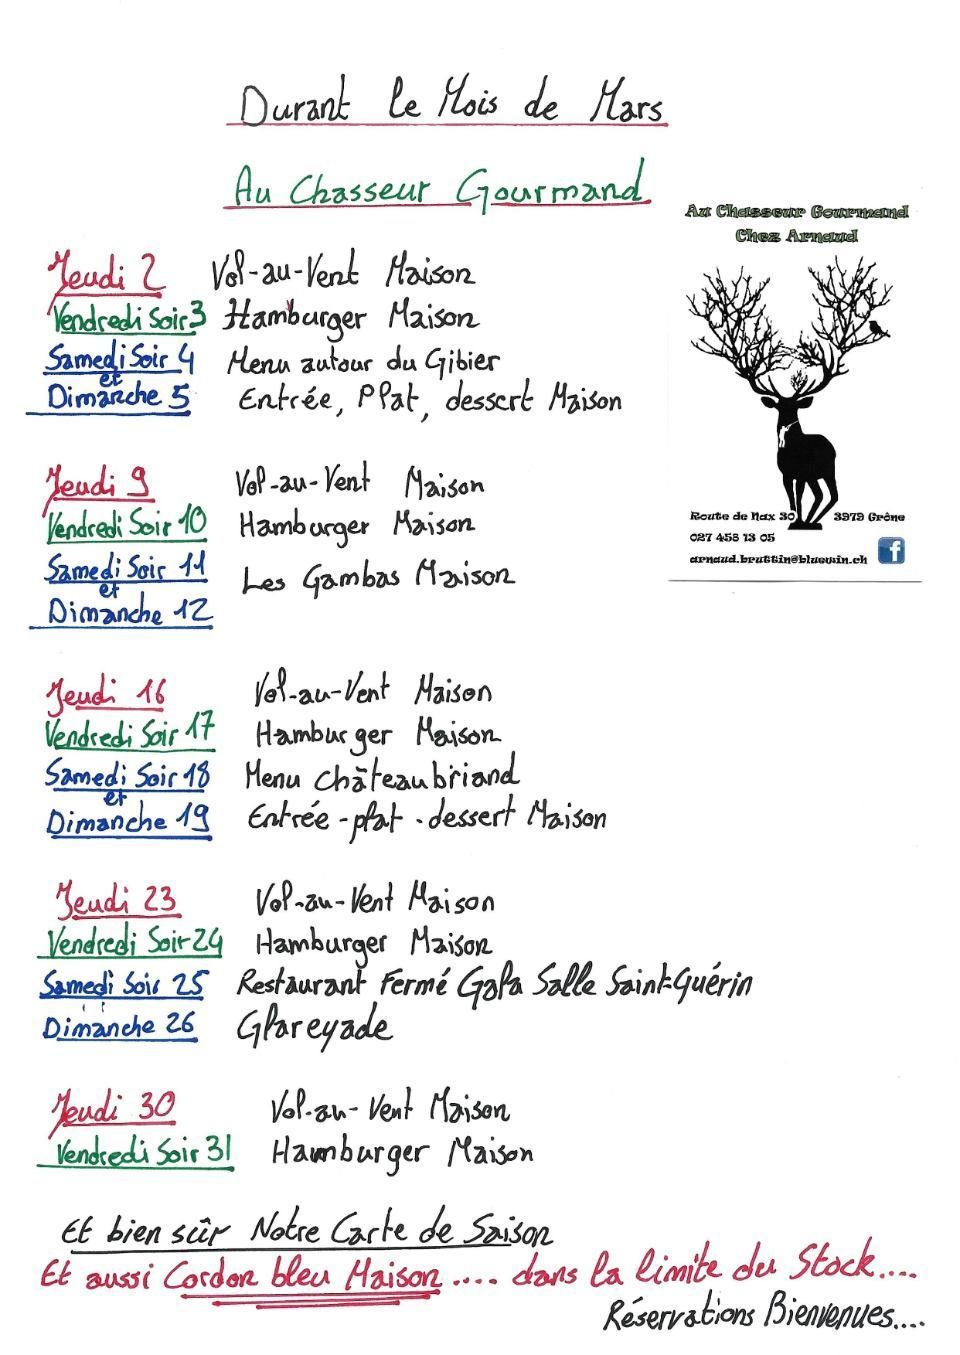 Durant le Mois de Mars
Au Chasseur Gourmand
Au Chasseur Gourmand
Chez Arnaud
Route de Nax 30 3979 Grône
027 458 13 05
arnaud.bruttin@bluewin.ch
f
Jeudi 2 Vol-au-Vent Maison
Vendredi Soir 3 Hamburger Maison
Samedi Soir 4 Menu autour du Gibier
et
Dimanche 5 Entrée, Plat, dessert Maison
Jeudi 9 Vol-au-Vent Maison
Vendredi Soir 10 Hamburger Maison
Samedi Soir 11 Les Gambas Maison
et
Dimanche 12
Jeudi 16 Vol-au-Vent Maison
Vendredi Soir 17 Hamburger Maison
Samedi Soir 18 Menu Châteaubriand
et
Dimanche 19 Entrée - plat - dessert Maison
Jeudi 23 Vol-au-Vent Maison
Vendredi Soir 24 Hamburger Maison
Samedi Soir 25 Restaurant Fermé Gala Salle Saint-Guérin
Dimanche 26 Glareyade
Jeudi 30 Vol-au-Vent Maison
Vendredi Soir 31 Hamburger Maison
Et bien sûr Notre Carte de Saison
Et aussi Cordon bleu Maison .... dans la limite du Stock....
Réservations Bienvenues....